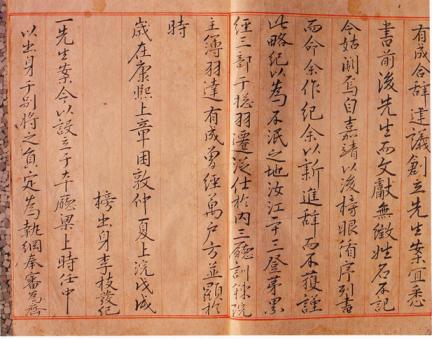 有成合辞建議創立先生案宜悉
書前後先生而文獻無徵姓名不記
今姑闕焉自嘉靖以後榜眼循序列書
而命余作紀余以新進辞而不獲謹
此略紀以為不泯之地汝江一二三登第累
經三部于穏羽遷從仕於內三廳訓鍊院
主簿羽達有成曾經萬戶方並顯於
時
歲在康熙上章困敦仲夏上浣戊戌
榜出身李枝發紀
一先生案今以設立于本廳梁上時任中
以出身于別將之員定為執綱奉審